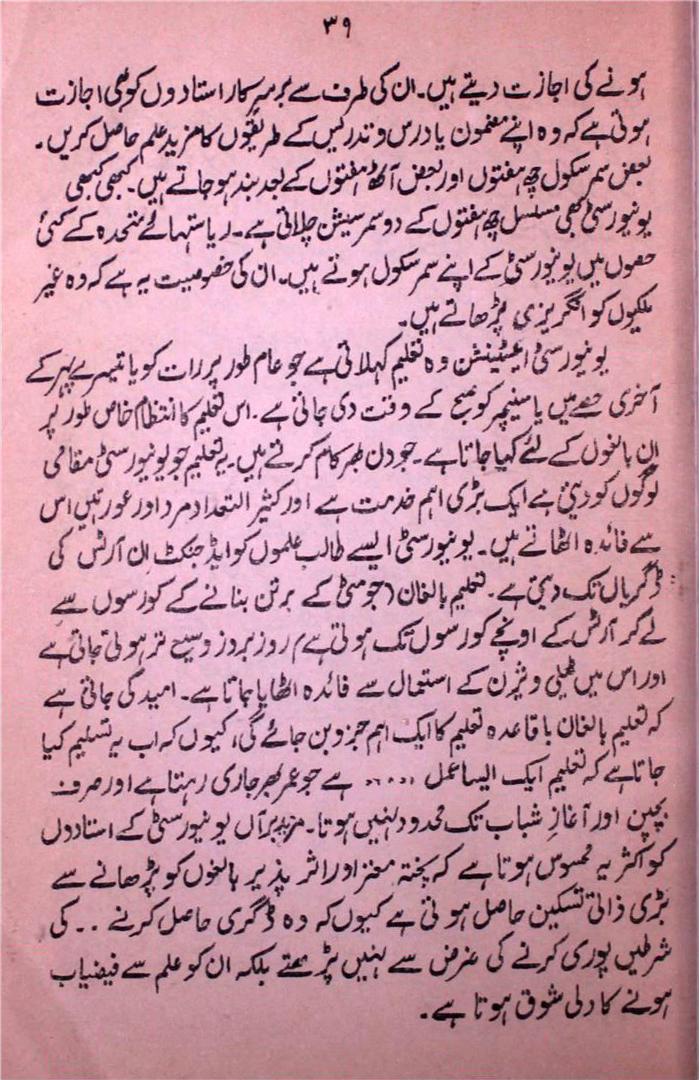 ۳۹
ہونے کی اجازت دیتے ہیں۔ ان کی طرف سے برسرِکار استادوں کو بھی اجازت
ہوتی ہے کہ وہ اپنے مضمون یا درس و تدریس کے طریقوں کا مزید علم حاصل کریں۔
بعض سمر سکول چھ ہفتوں اور بعض آٹھ ہفتوں کے بعد بند ہو جاتے ہیں۔ کبھی کبھی
یونیورسٹی بھی مسلسل چھ ہفتوں کے دو سمر سیشن چلاتی ہے۔ ریاستہائے متحدہ کے کئی
حصوں میں یونیورسٹی کے اپنے سمر سکول ہوتے ہیں۔ ان کی خصوصیت یہ ہے کہ وہ غیر
ملکیوں کو انگریزی پڑھاتے ہیں۔
یونیورسٹی ایکسٹینشن وہ تعلیم کہلاتی ہے جو عام طور پر رات کو یا تیسرے پہر کے
آخری حصے میں یا سنیچر کو صبح کے وقت دی جاتی ہے۔ اس تعلیم کا انتظام خاص طور پر
ان بالغوں کے لئے کیا جاتا ہے۔ جو دن بھر کام کرتے ہیں۔ یہ تعلیم جو یونیورسٹی مقامی
لوگوں کو دیتی ہے ایک بڑی اہم خدمت ہے اور کثیر التعداد مرد اور عورتیں اس
سے فائدہ اٹھاتے ہیں۔ یونیورسٹی ایسے طالب علموں کو ایڈجنکٹ ان آرٹس کی
ڈگریاں تک دیتی ہے۔ تعلیم بالغان (جو مٹی کے برتن بنانے کے کورسوں سے
لے کر آرٹس کے اونچے کورسوں تک ہوتی ہے) روز بروز وسیع تر ہوتی جاتی ہے
اور اس میں ٹیلی ویژن کے استعمال سے فائدہ اٹھایا جاتا ہے۔ امید کی جاتی ہے
کہ تعلیم بالغان باقاعدہ تعلیم کا ایک اہم جزو بن جائے گی، کیوں کہ اب یہ تسلیم کیا
جاتا ہے کہ تعلیم ایک ایسا عمل .... ہے جو عمر بھر جاری رہتا ہے اور صرف
بچپن اور آغازِ شباب تک محدود نہیں ہوتا۔ مزید برآں یونیورسٹی کے استادوں
کو اکثر یہ محسوس ہوتا ہے کہ پختہ مغز اور اثر پذیر بالغوں کو پڑھانے سے
بڑی ذاتی تسکین حاصل ہوتی ہے کیوں کہ وہ ڈگری حاصل کرنے .. کی
شرطیں پوری کرنے کی غرض سے نہیں پڑھتے بلکہ ان کو علم سے فیضیاب
ہونے کا دلی شوق ہوتا ہے۔